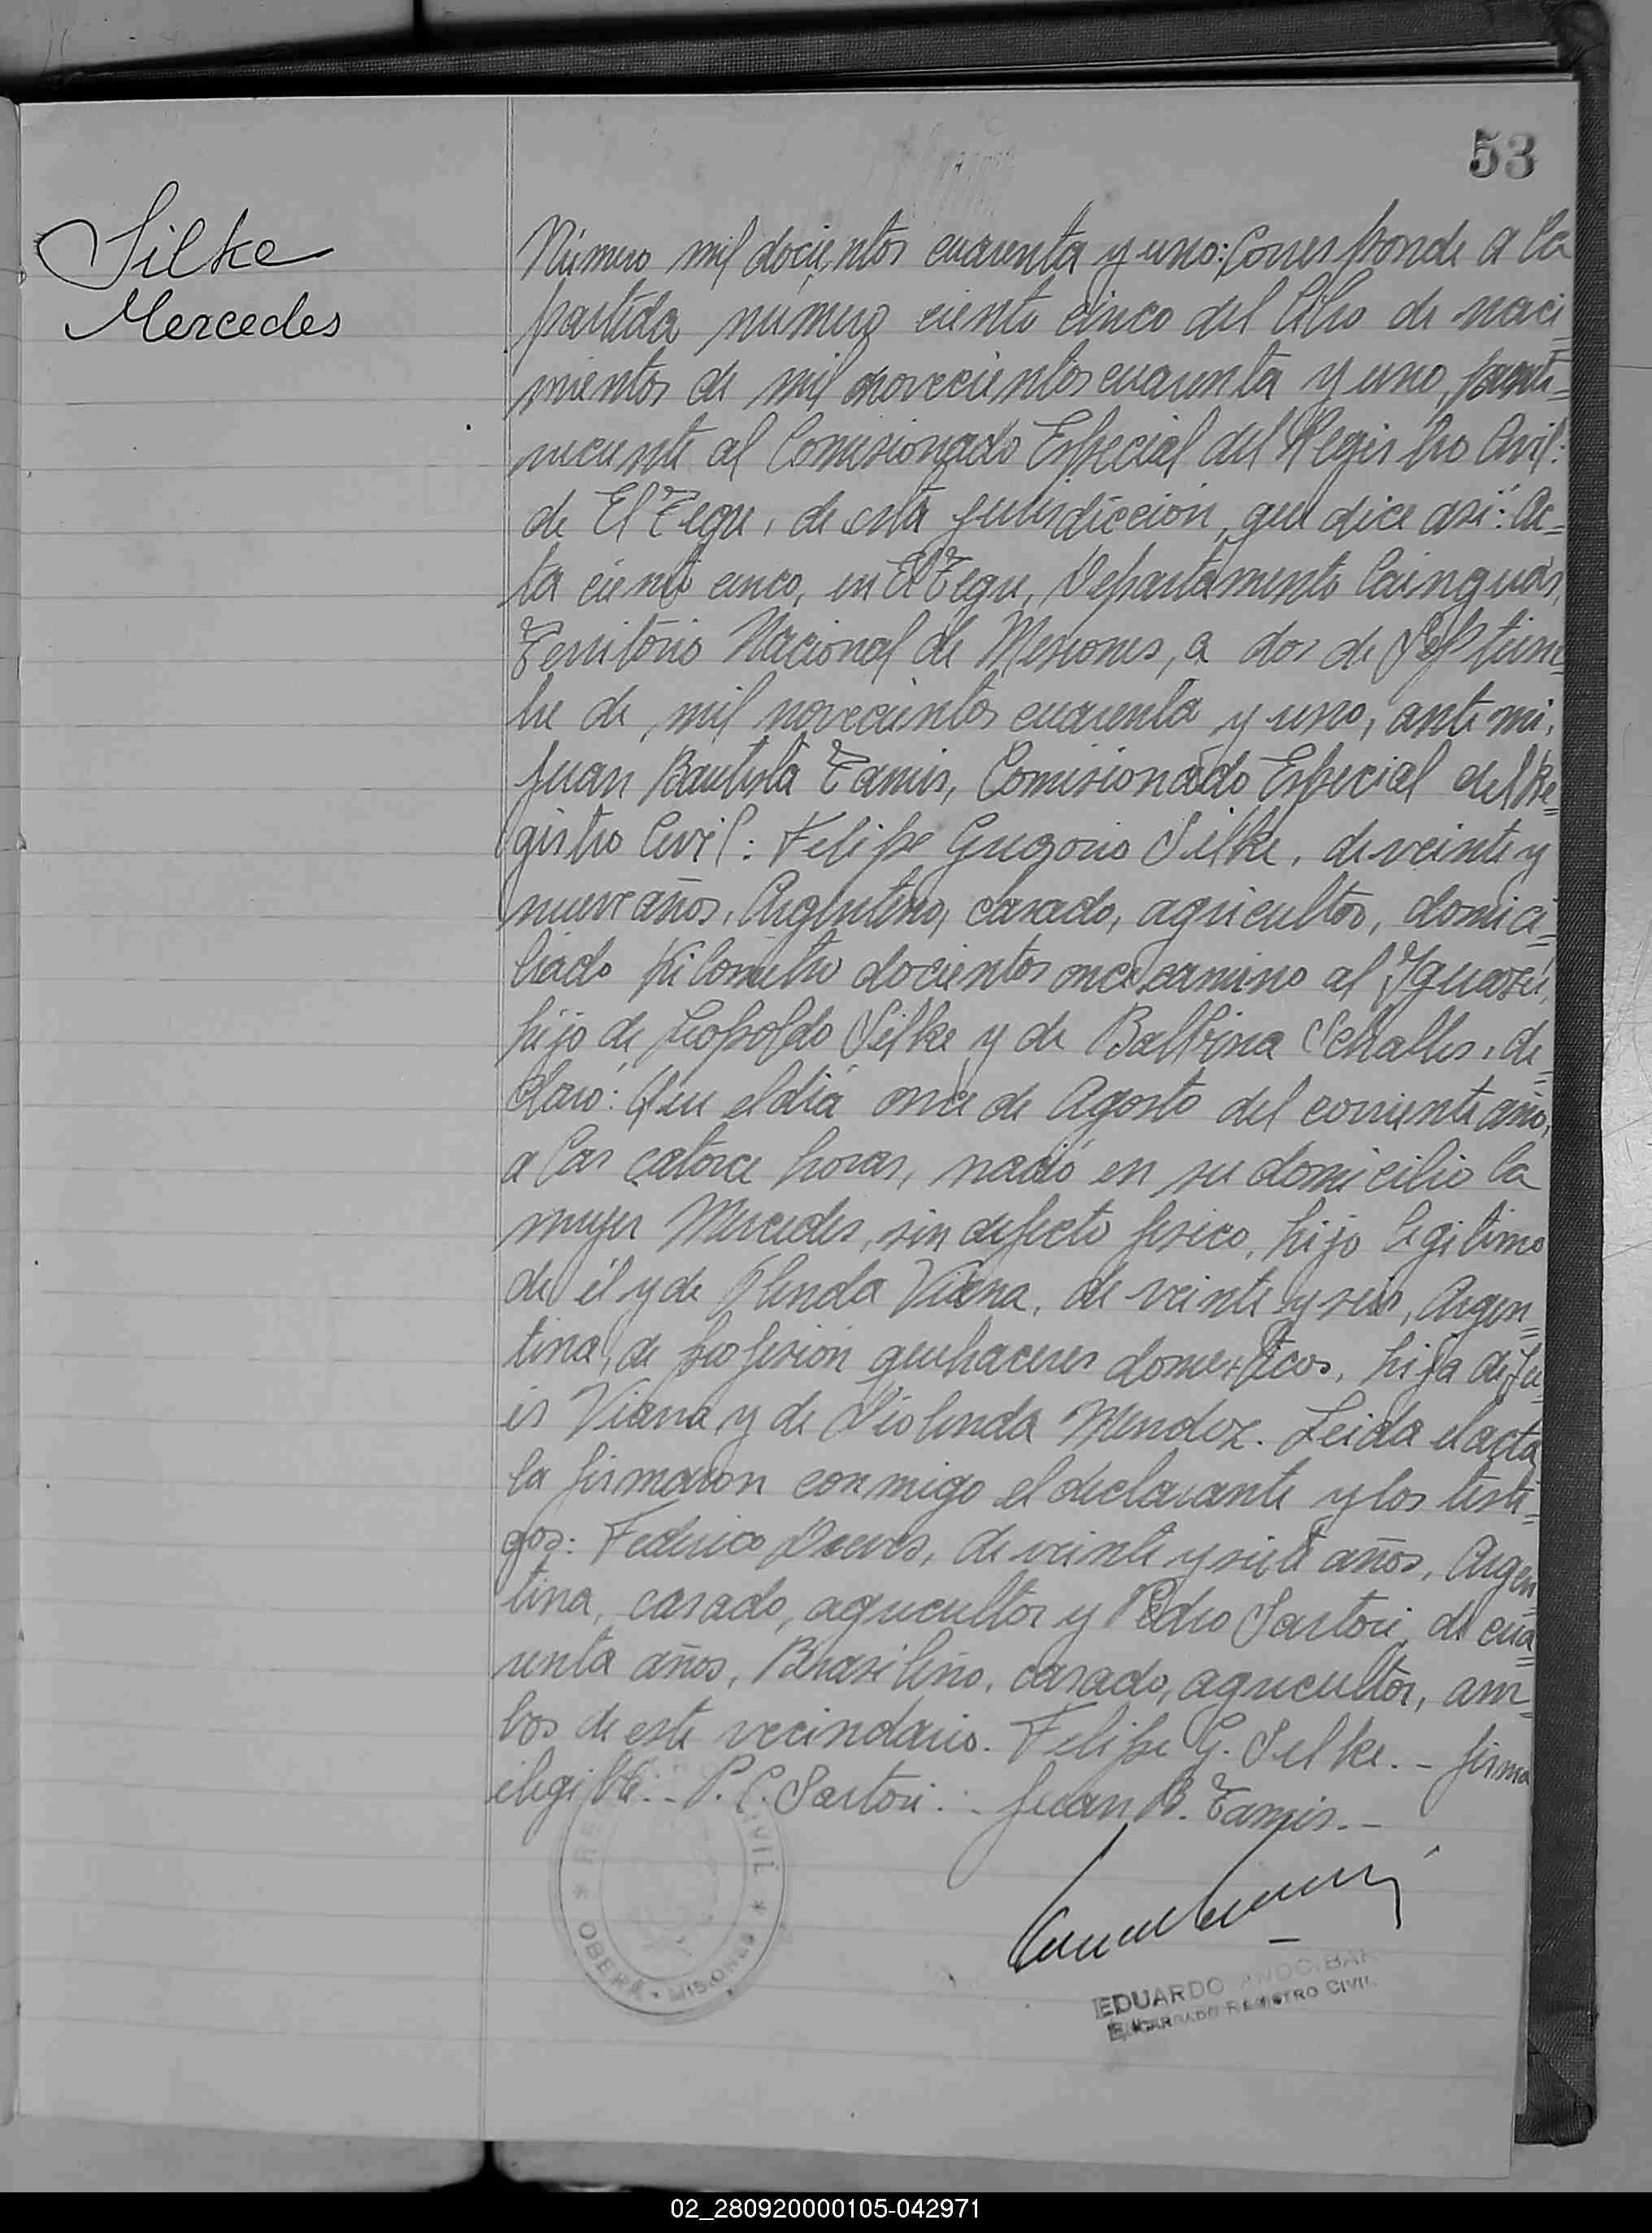 53
Silke
Mercedes
Número mil docientos cuarenta y uno: Corresponde a la
partida número ciento cinco del libro de naci=
mientos de mil novecientos cuarenta y uno, perte=
neciente al Comisionado Especial del Registro Civil:
de El Tegu, de esta jurisdicción, que dice asi: Ac=
ta ciento cinco, en El Tegu, Departamento Cainguás,
Territorio Nacional de Misiones, a dos de Septiem=
bre de mil novecientos cuarenta y uno, ante mi,
Juan Bautista Tamis, Comisionado Especial del Re=
gistro Civil: Felipe Gregorio Silke, de veinte y
nueve años, Argentino, casado, agricultor, domici=
liado Kilometro docientos once camino al Yguazú,
hijo de Leopoldo Silke y de Balbina Schalles, de=
claró: Que el día once de Agosto del corriente año,
a las catorce horas, nació en su domicilio la
mujer Mercedes, sin defecto fisico, hijo legitimo
de él y de Viana, de veinte y seis, Argen=
tina, de profesión quehaceres domesticos, hija de Lu=
is Viana y de Violinda Mendoz. Leida el acta
la firmaron conmigo el declarante y los testi=
gos: Federico de veinte y siete años, Argen=
tina, casado, agricultor y Pedro Sartori, de cua=
renta años, Brasileño, casado, agricultor, am=
bos de este vecindario. Felipe G. Silke. - firma
ilegible.- P. C. Sartori.- Juan B. Tamis.-
CIVIL * OBERÁ - MISIONES *
EDUARDO
ENCARGADO REGISTRO CIVIL
02_280920000105-042971